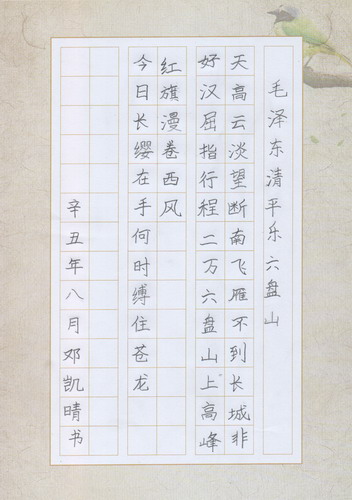 毛泽东清平乐六盘山
天高云淡望断南飞雁不到长城非
好汉屈指行程二万六盘山上高峰
红旗漫卷西风
今日长缨在手何时缚住苍龙
辛丑年八月邓凯晴书